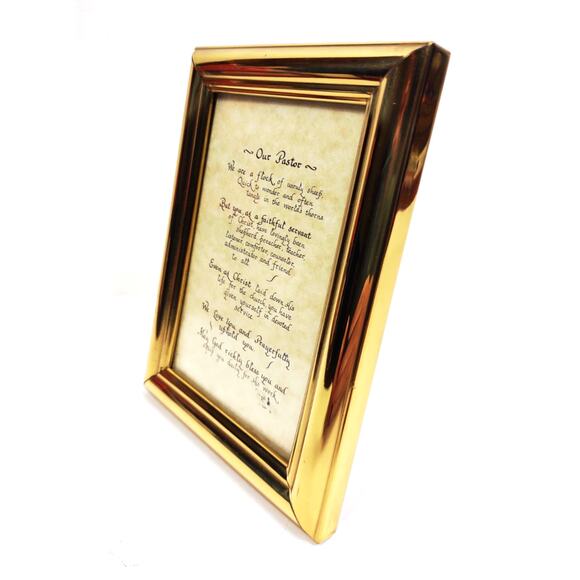 ~ Our Pastor ~
We are a flock of unruly sheep,
Quick to wander and often
tangle in the world's thorns
But you, as a faithful servant
of Christ, have lovingly been
shepherd, preacher, teacher,
listener, comforter, counselor,
administrator and friend
to all
Even as Christ laid down His
life for the church, you have
given yourself in devoted
service
We Love you and Prayerfully
uphold you.
May God richly bless you and
you daily for the work